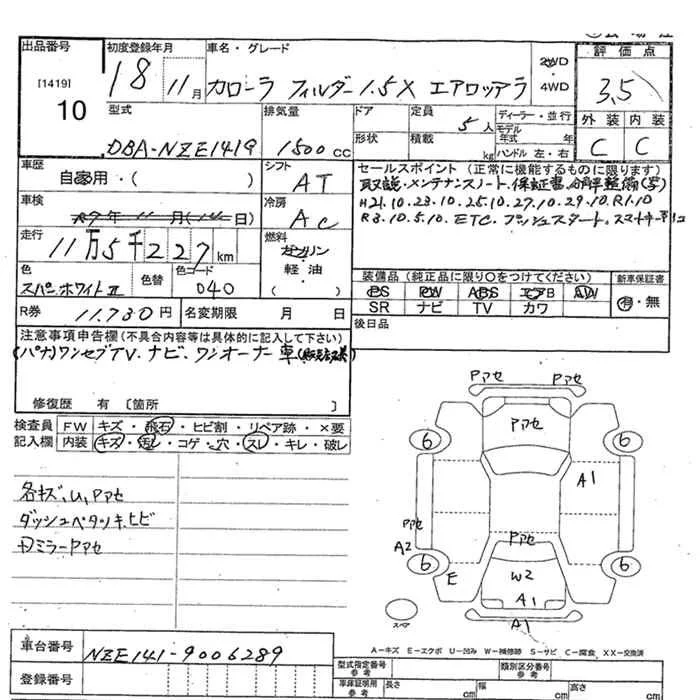 出品番号 初度登録年月 車名・グレード 2WD 評価点
[1419] 10 18 11月 カローラ フィルダー 1.5X エアロツアラ ・4WD 3.5
型式 排気量 ドア 定員 ディーラー・並行 外装 内装
DBA-NZE141G 1500cc 5人 モデル年式 年 C C
形状 積載 kg ハンドル 左・右
車歴 シフト セールスポイント (正常に機能するものに限ります)
自家用・( ) AT 取説・メンテナンスノート・保証書・分解整備(写)
車検 冷房 H21.10.23.10.25.10.27.10.29.10.R1.10
年 11月( 日) AC R3.10.5.10.ETC.プッシュスタート.スマートキー
走行 燃料
11万5千227km ガソリン
軽油・( )
色 色替 色コード 装備品(純正品に限り○をつけてください) 新車保証書
スーパーホワイトⅡ 040 PS PW ABS エアB AW 有・無
SR ナビ TV カワ
R券 11.730円 名変期限 月 日 後日品
注意事項申告欄(不具合内容等は具体的に記入して下さい)
(パナ)ワンセグTV.ナビ.ワンオーナー車
修復歴 有 [箇所 ]
検査員 FW キズ・飛石・ヒビ割・リペア跡・×要
記入欄 内装 キズ・汚レ・コゲ・穴・スレ・キレ・破レ
各キズ,U,Pアセ
ダッシュベタツキ,ヒビ
ミラーPアセ
Pアセ Pアセ
Pアセ
6 6
A1
Pアセ
A2
Pアセ
6 6
E W2
A1
A1
スペア
A-キズ E-エクボ U-凹み W-補修跡 S-サビ C-腐食 XX-交換済
車台番号 NZE141-9006289
登録番号
型式指定番号 参考 類別区分番号 参考
車庫証明用 参考 長さ cm 幅 cm 高さ cm